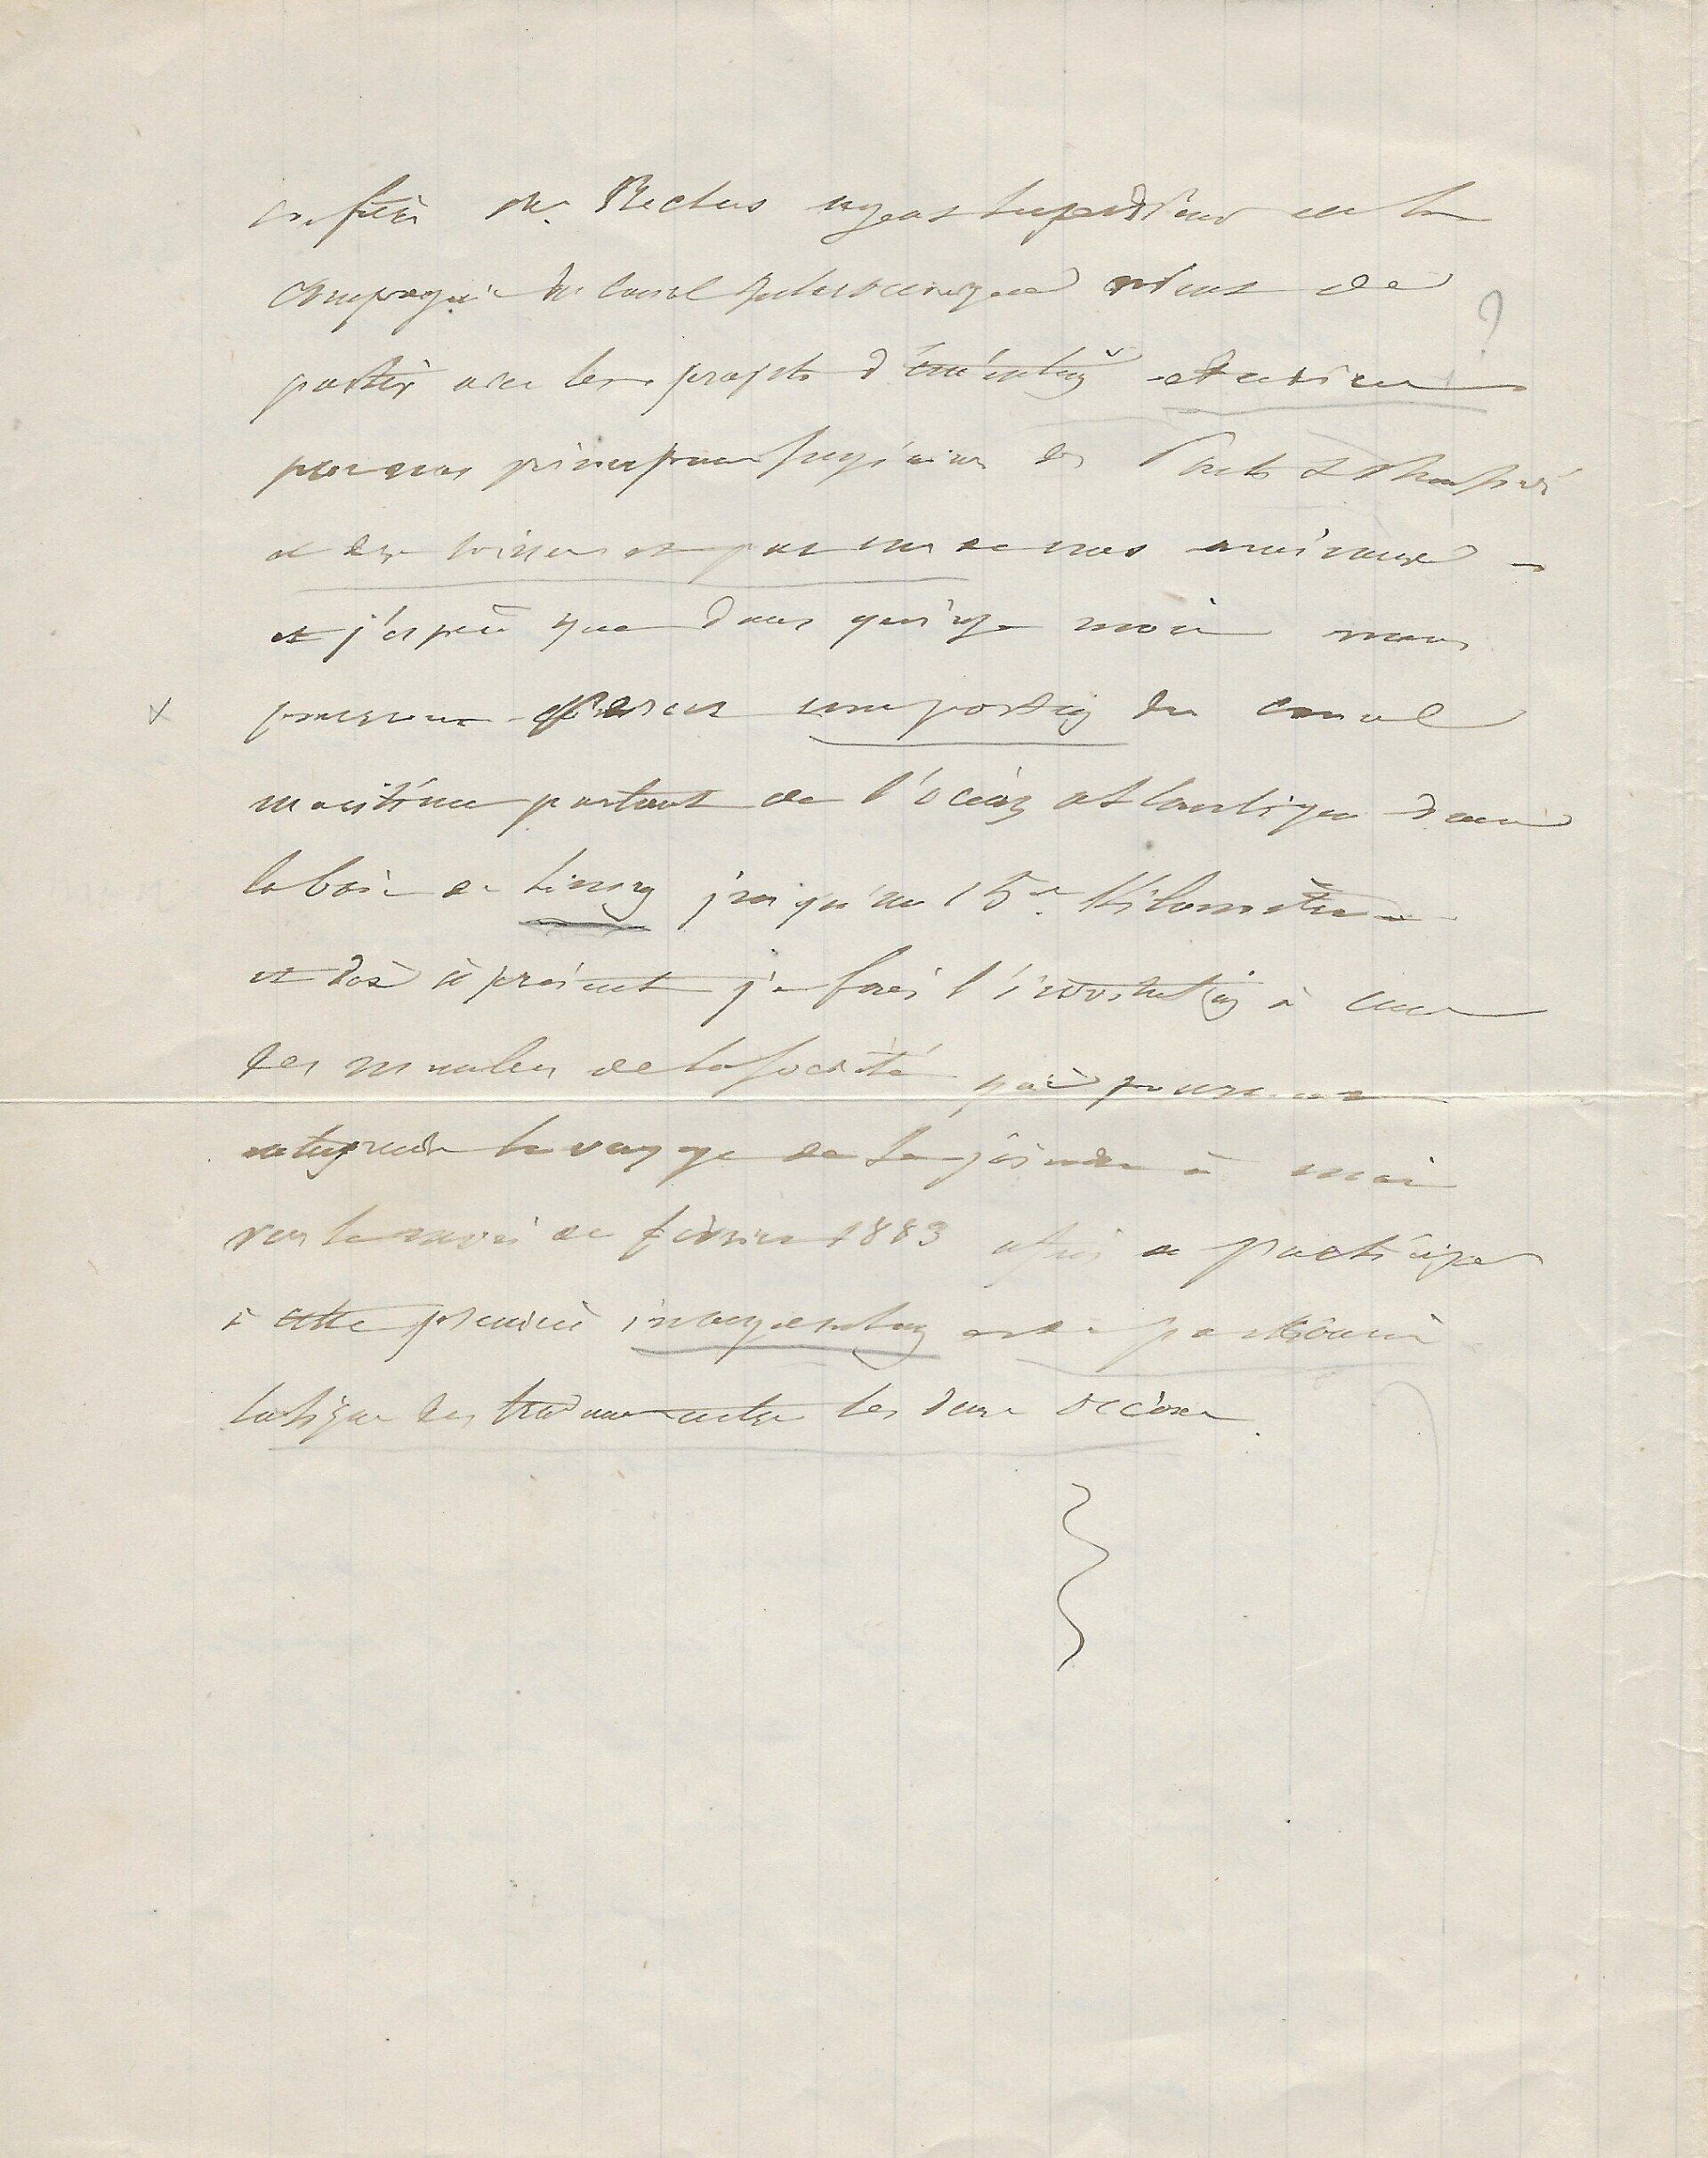 confrère Mr. Reclus agent supérieur de la
Compagnie du Canal interocéanique vient de
partir avec les projets d'exécution ?
par nos principaux Ingénieurs des Ponts &
et des par un de nos amiraux
et j'espère que dans quinze mois nous
pourrons une portion du canal
maritime partant de l'océan atlantique dans
la baie de Limon jusqu'au 15e. Kilomètre
et dès à présent je fais l'invitation à ceux
des membres de la Société qui pourront
entreprendre le voyage de se joindre à moi
vers le mois de février 1883 afin de participer
x
à cette première inauguration et de parcourir
la ligne des travaux entre les deux océans.